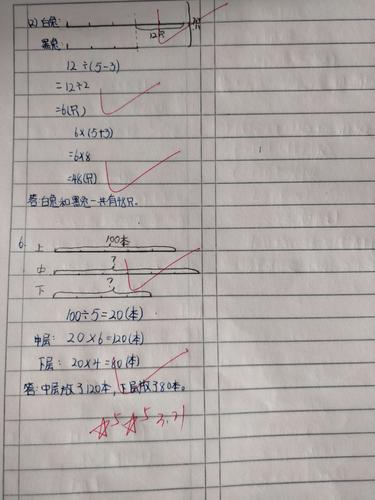 (2) 白兔:
12只
?只
黑兔:
12÷(5-3)
=12÷2
=6(只)
6×(5+3)
=6×8
=48(只)
答:白兔和黑兔一共有48只。
6.
上
100本
?
中
?
下
100÷5=20(本)
中层: 20×6=120(本)
下层: 20×4=80(本)
答:中层放了120本,下层放了80本。
5 5 3.21